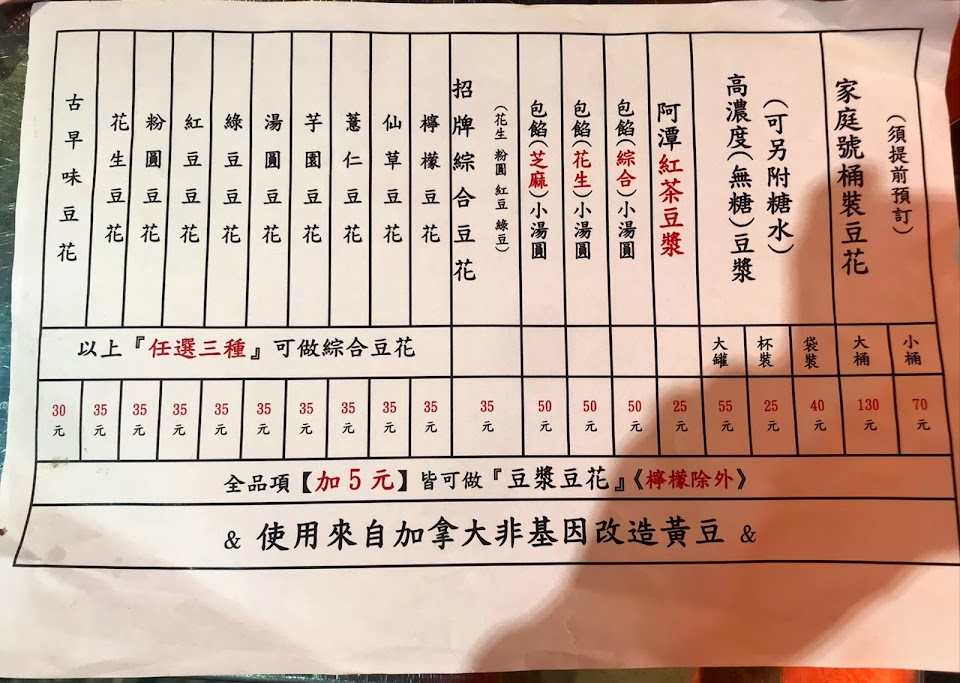 古早味豆花
花生豆花
粉圓豆花
紅豆豆花
綠豆豆花
湯圓豆花
芋園豆花
薏仁豆花
仙草豆花
檸檬豆花
招牌綜合豆花
(花生 粉圓 紅豆 綠豆)
包餡(芝麻)小湯圓
包餡(花生)小湯圓
包餡(綜合)小湯圓
阿潭紅茶豆漿
高濃度(無糖)豆漿
(可另附糖水)
家庭號桶裝豆花
(須提前預訂)
以上『任選三種』可做綜合豆花
大罐
杯裝
袋裝
大桶
小桶
30元
35元
35元
35元
35元
35元
35元
35元
35元
35元
35元
50元
50元
50元
25元
55元
25元
40元
130元
70元
全品項【加5元】皆可做『豆漿豆花』《檸檬除外》
& 使用來自加拿大非基因改造黃豆 &